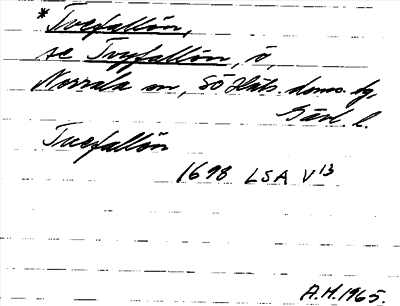 *Tvefallön,
se Tryfallön, ö,
Norrala sn, Sö Häls. doms. tg,
Gävl. l.
Tvefallön
1698 LSA V¹³
A.H. 1965.